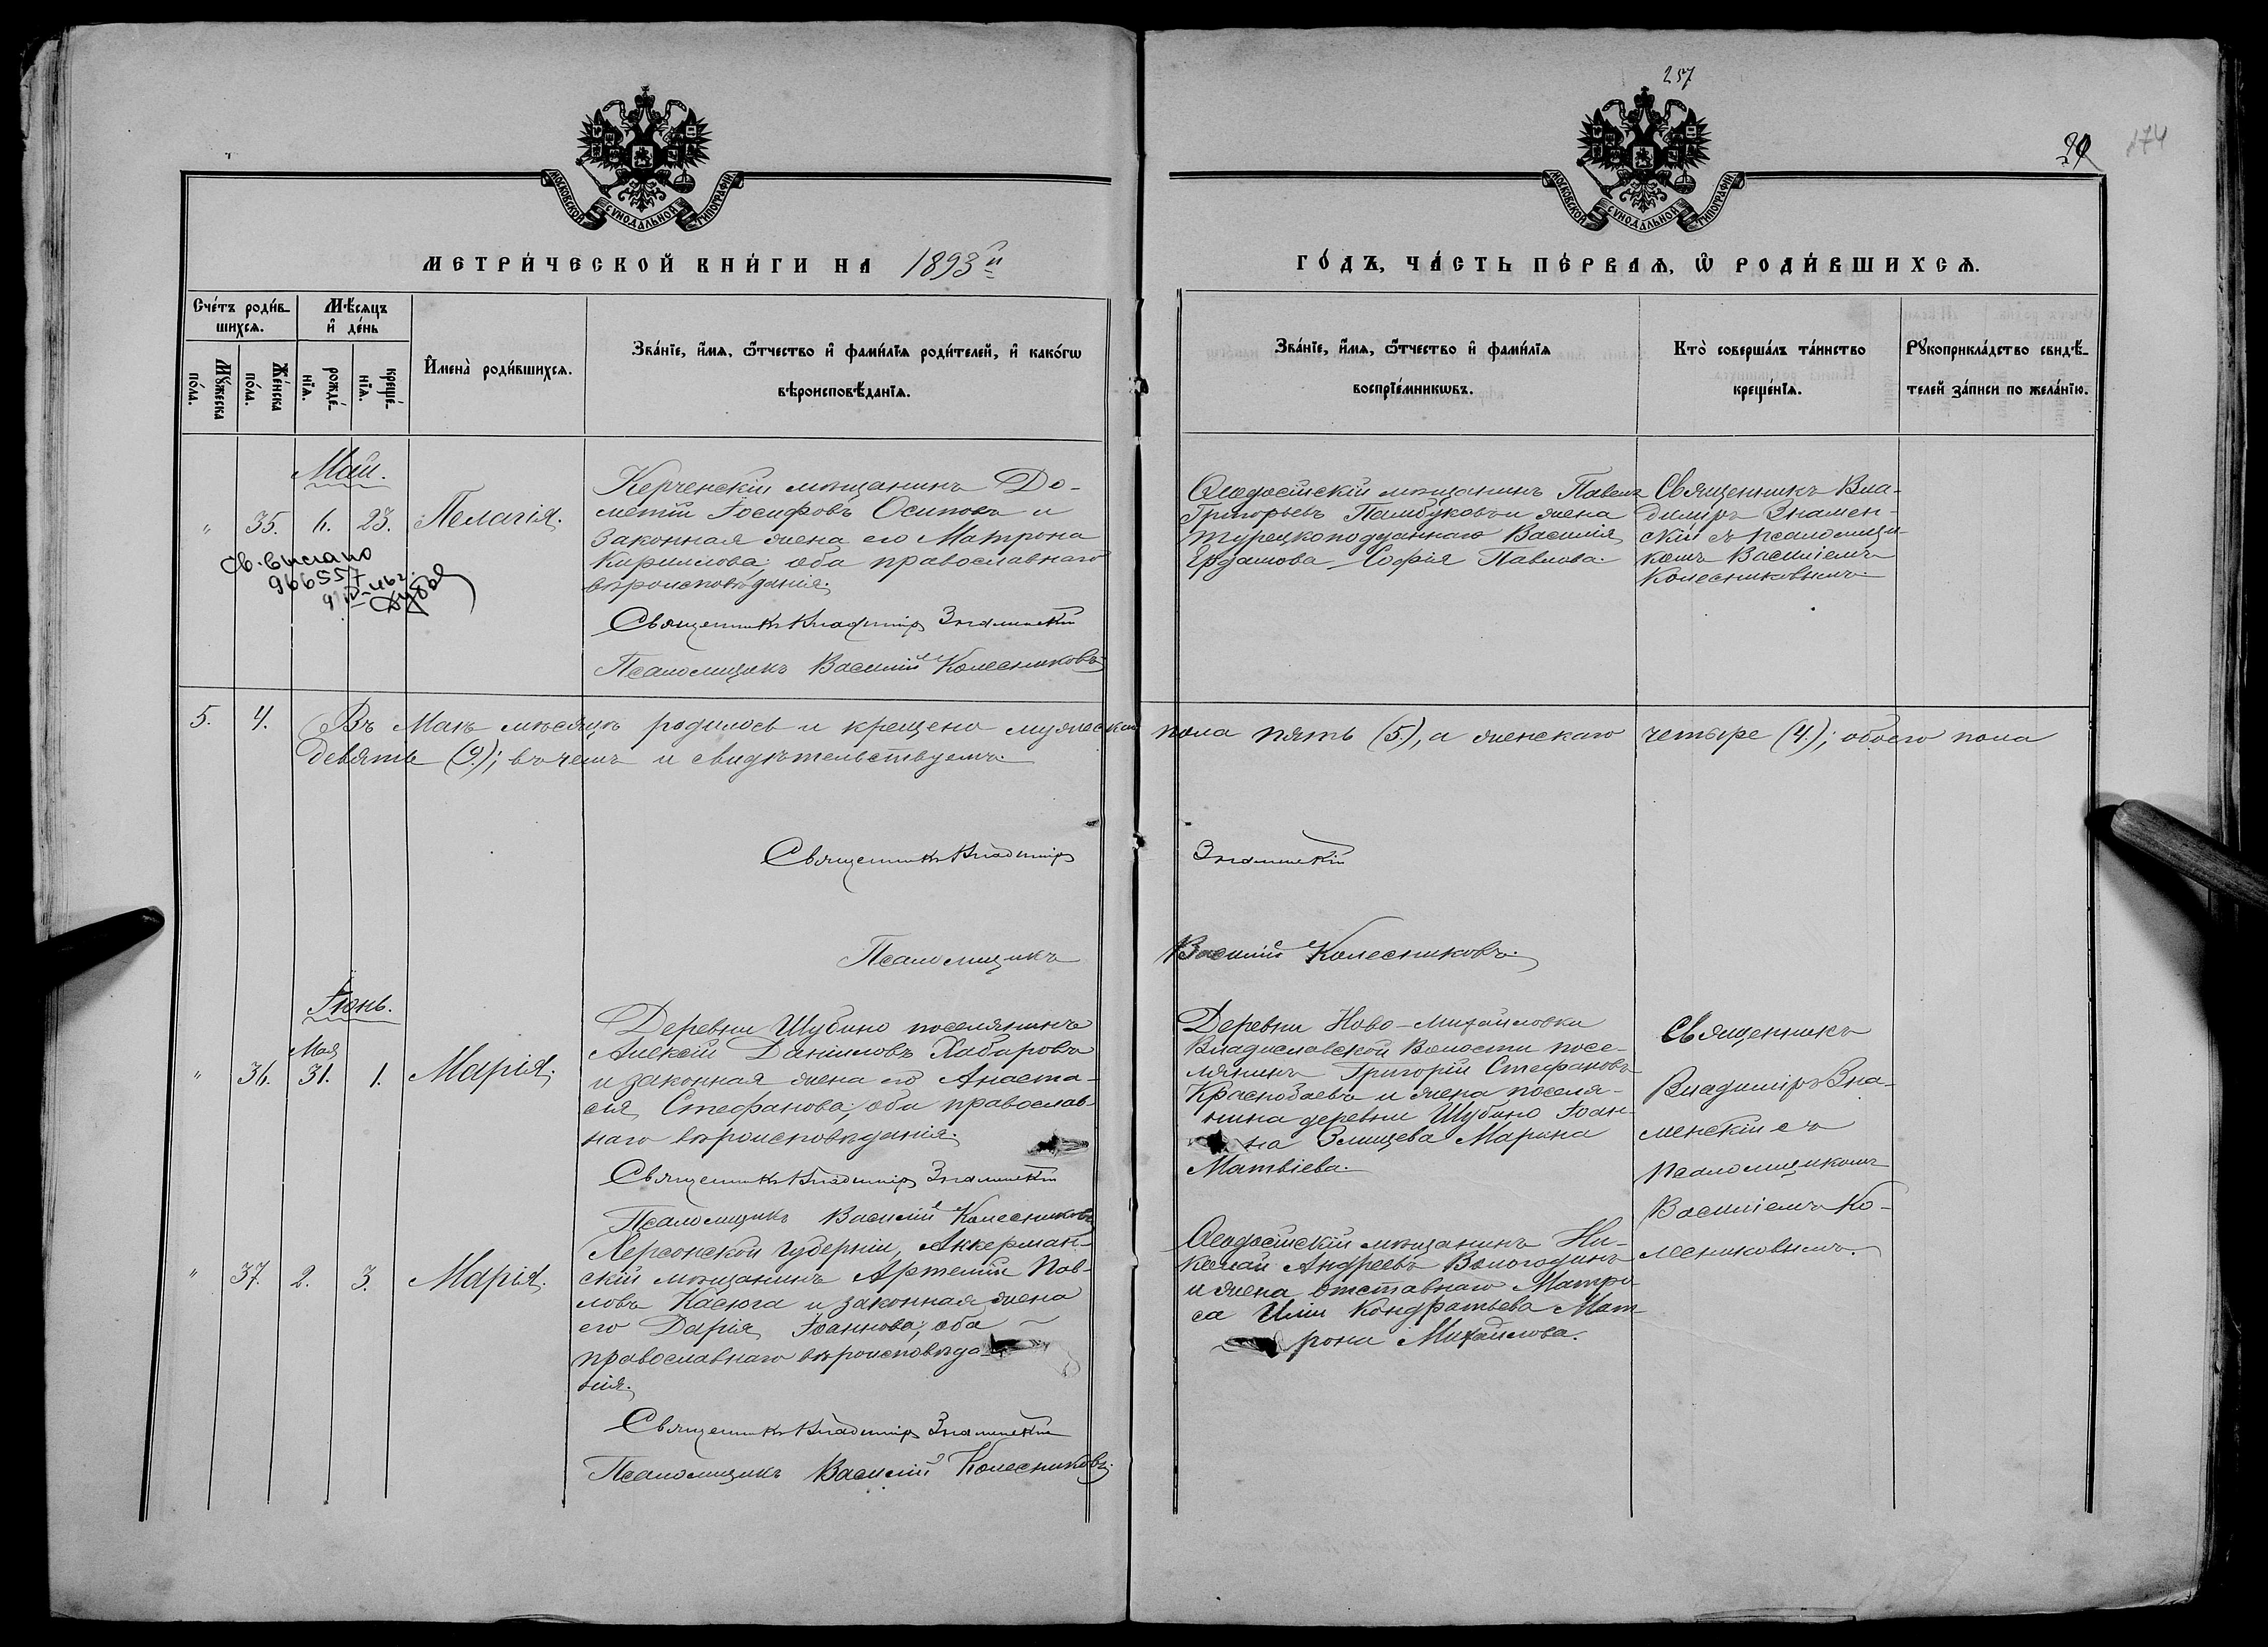 257
20
174
МОСКОВСКОЙ СѴНОДАЛЬНОЙ ТИПОГРАФІИ
МОСКОВСКОЙ СѴНОДАЛЬНОЙ ТИПОГРАФІИ
МЕТРИ́ЧЕСКОЙ КНИ́ГИ НА 1893й
ГО́ДЪ, ЧА́СТЬ ПЕ́РВАѦ, Ѡ҆ РОДИ́ВШИХСѦ.
Сче́тъ роди́в-
шихсѧ.
Мѣ́сѧцъ
и҆ де́нь
Мꙋ́жеска
по́ла.
Же́нска
по́ла.
рожде́-
нїѧ.
креще́-
нїѧ.
И҆мена̀ роди́вшихсѧ.
Зва́нїе, и҆́мѧ, ѻ҆́тчество и҆ фами́лїѧ роди́телей, и҆ како́гѡ
вѣроисповѣ́данїѧ.
Зва́нїе, и҆́мѧ, ѻ҆́тчество и҆ фами́лїѧ
воспрїе́мникѡвъ.
Кто̀ соверша́лъ та́инство
креще́нїѧ.
Рꙋкоприкла́дство свидѣ́-
телей за́писи по жела́нїю.
Май.
" 35. 6. 23. Пелагія.
Керченскій мѣщанинъ До-
метій Іосифовъ Осиповъ и
законная жена его Матрона
Кириллова; оба православнаго
вѣроисповѣданія.
Священникъ Владиміръ Знаменскій
Псаломщикъ Василій Колесниковъ
Св. выслано
966557
Ѳеодосійскій мѣщанинъ Павелъ
Григорьевъ Памбуковъ и жена
турецкоподданнаго Василія
Ердашова София Павлова.
Священникъ Вла-
диміръ Знамен-
скій съ псаломщи-
комъ Василіемъ
Колесниковымъ.
5. 4. Въ Маѣ мѣсяцѣ родилось и крещено мужеска пола пять (5), а женскаго четыре (4); обоего пола
девять (9); въ чемъ и свидѣтельствуемъ.
Священникъ Владиміръ Знаменскій
Псаломщикъ Василій Колесниковъ.
Іюнь.
Мая
" 36. 31. 1. Марія.
Деревни Шубино поселянинъ
Алексій Даніиловъ Хабаровъ
и законная жена его Анаста-
сія Стефанова; оба православ-
наго вѣроисповѣданія.
Священникъ Владиміръ Знаменскій
Псаломщикъ Василій Колесниковъ
Деревни Ново-Михайловки
Владиславской Волости посе-
лянинъ Григорій Стефановъ
Краснобаевъ и жена поселя-
нина деревни Шубино Іоан-
на Змищева Марина
Матвіева.
Священникъ
Владиміръ Зна-
менскій съ
псаломщикомъ
Василіемъ Ко-
лесниковымъ.
" 37. 2. 3. Марія.
Херсонской губерніи, Аккерман-
скій мѣщанинъ Артемій Пав-
ловъ Касюга и законная жена
его Дарія Іоаннова; оба
православнаго вѣроисповѣда-
нія.
Священникъ Владиміръ Знаменскій
Псаломщикъ Василій Колесниковъ.
Ѳеодосійскій мѣщанинъ Ни-
колай Андреевъ Вологодинъ
и жена отставнаго Матро-
са Иліи Кондратьева Мат-
рона Михайлова.